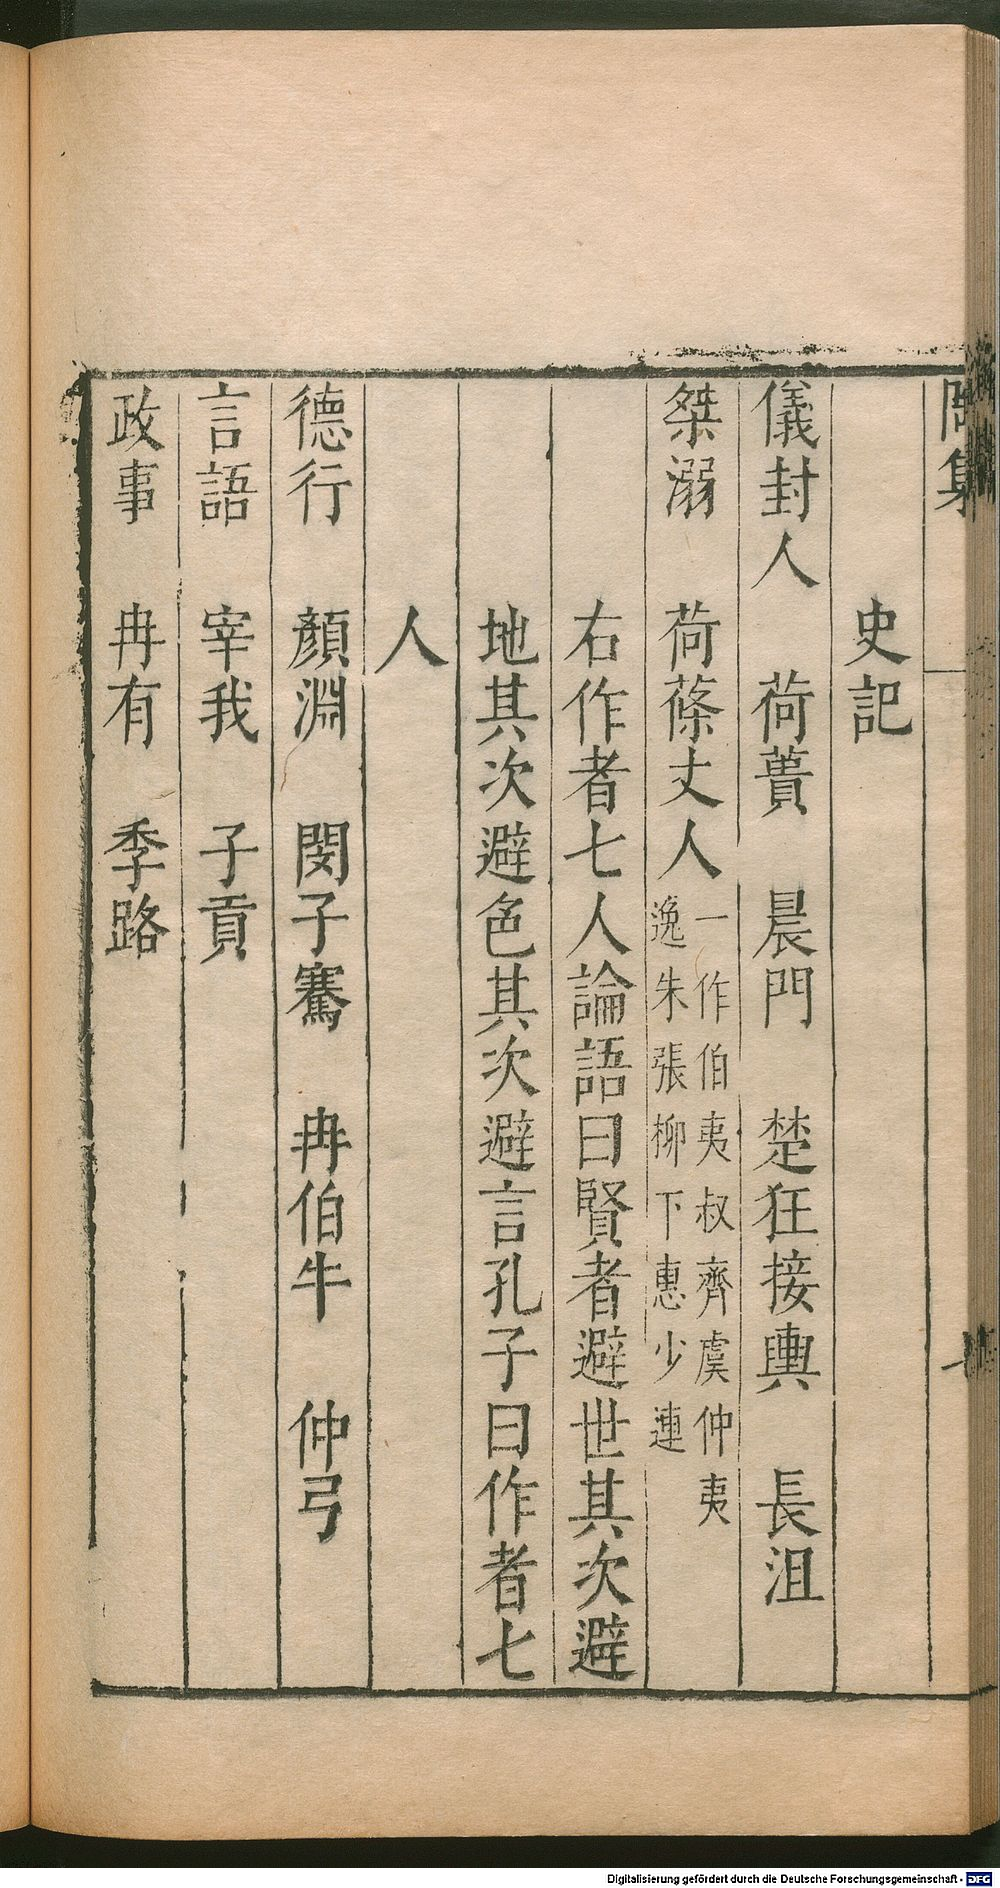 史記
儀封人　荷蕢　晨門　楚狂接輿　長沮
桀溺　荷蓧丈人
一作伯夷叔齊虞仲夷
逸朱張柳下惠少連
右作者七人論語曰賢者避世其次避
地其次避色其次避言孔子曰作者七
人
德行　顏淵　閔子騫　冉伯牛　仲弓
言語　宰我　子貢
政事　冉有　季路
Digitalisierung gefördert durch die Deutsche Forschungsgemeinschaft - DFG